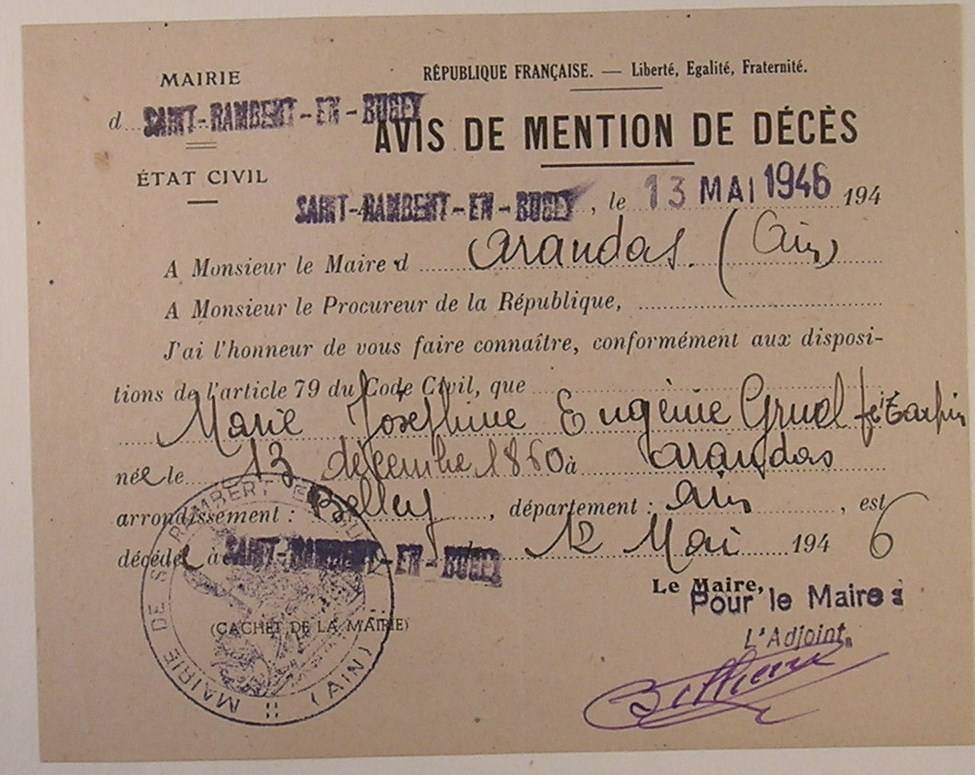 MAIRIE
RÉPUBLIQUE FRANÇAISE. — Liberté, Egalité, Fraternité.
d SAINT-RAMBERT-EN-BUGEY
AVIS DE MENTION DE DÉCÈS
ÉTAT CIVIL
SAINT-RAMBERT-EN-BUGEY, le 13 MAI 1946 194
A Monsieur le Maire d Arandas. (Ain)
A Monsieur le Procureur de la République,
J'ai l'honneur de vous faire connaître, conformément aux disposi-
tions de l'article 79 du Code Civil, que
Marie Joséphine Eugénie Gruel
née le 13 décembre 1860 à Arandas
arrondissement : Belley, département : Ain, est
décédée à SAINT-RAMBERT-EN-BUGEY le 12 Mai 194 6
Le Maire,
Pour le Maire :
L'Adjoint,
(CACHET DE LA MAIRIE)
MAIRIE DE St RAMBERT EN BUGEY (AIN)